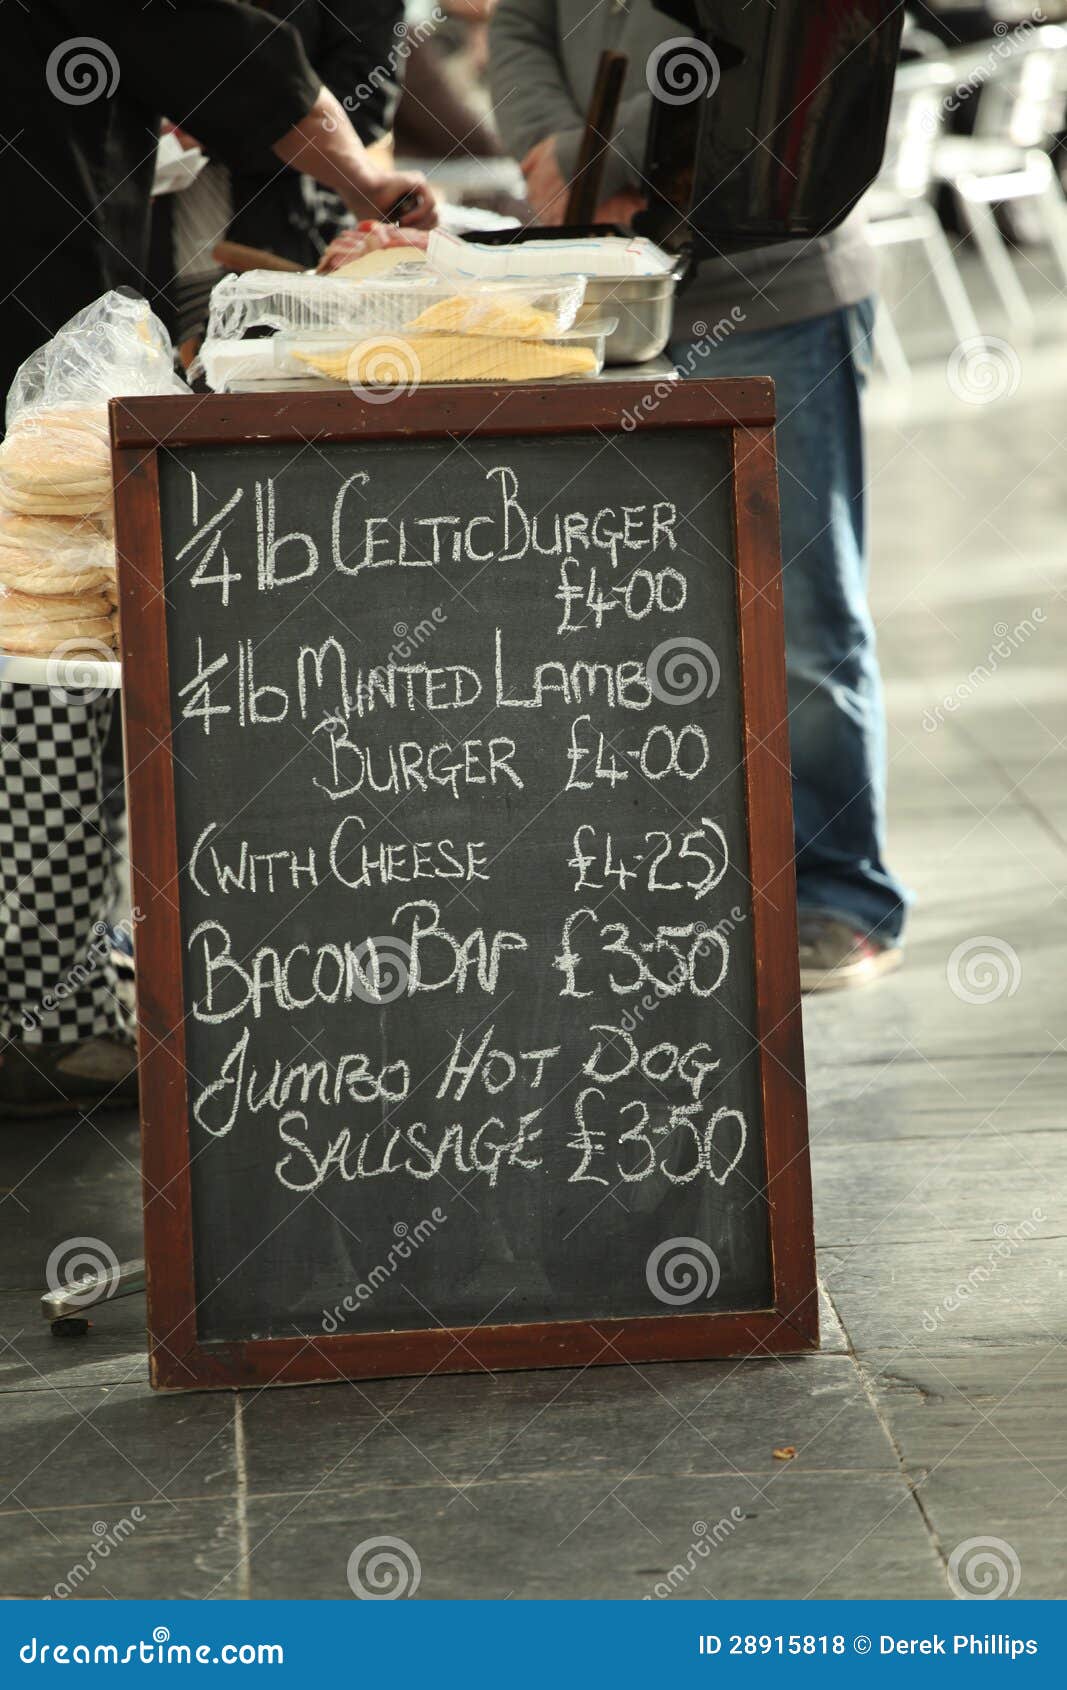 1/4 lb CELTIC BURGER
£4-00
1/4 lb MINTED LAMB
BURGER £4-00
(WITH CHEESE £4-25)
BACON BAP £3-50
JUMBO HOT DOG
SAUSAGE £3-50
dreamstime.com
ID 28915818 © Derek Phillips